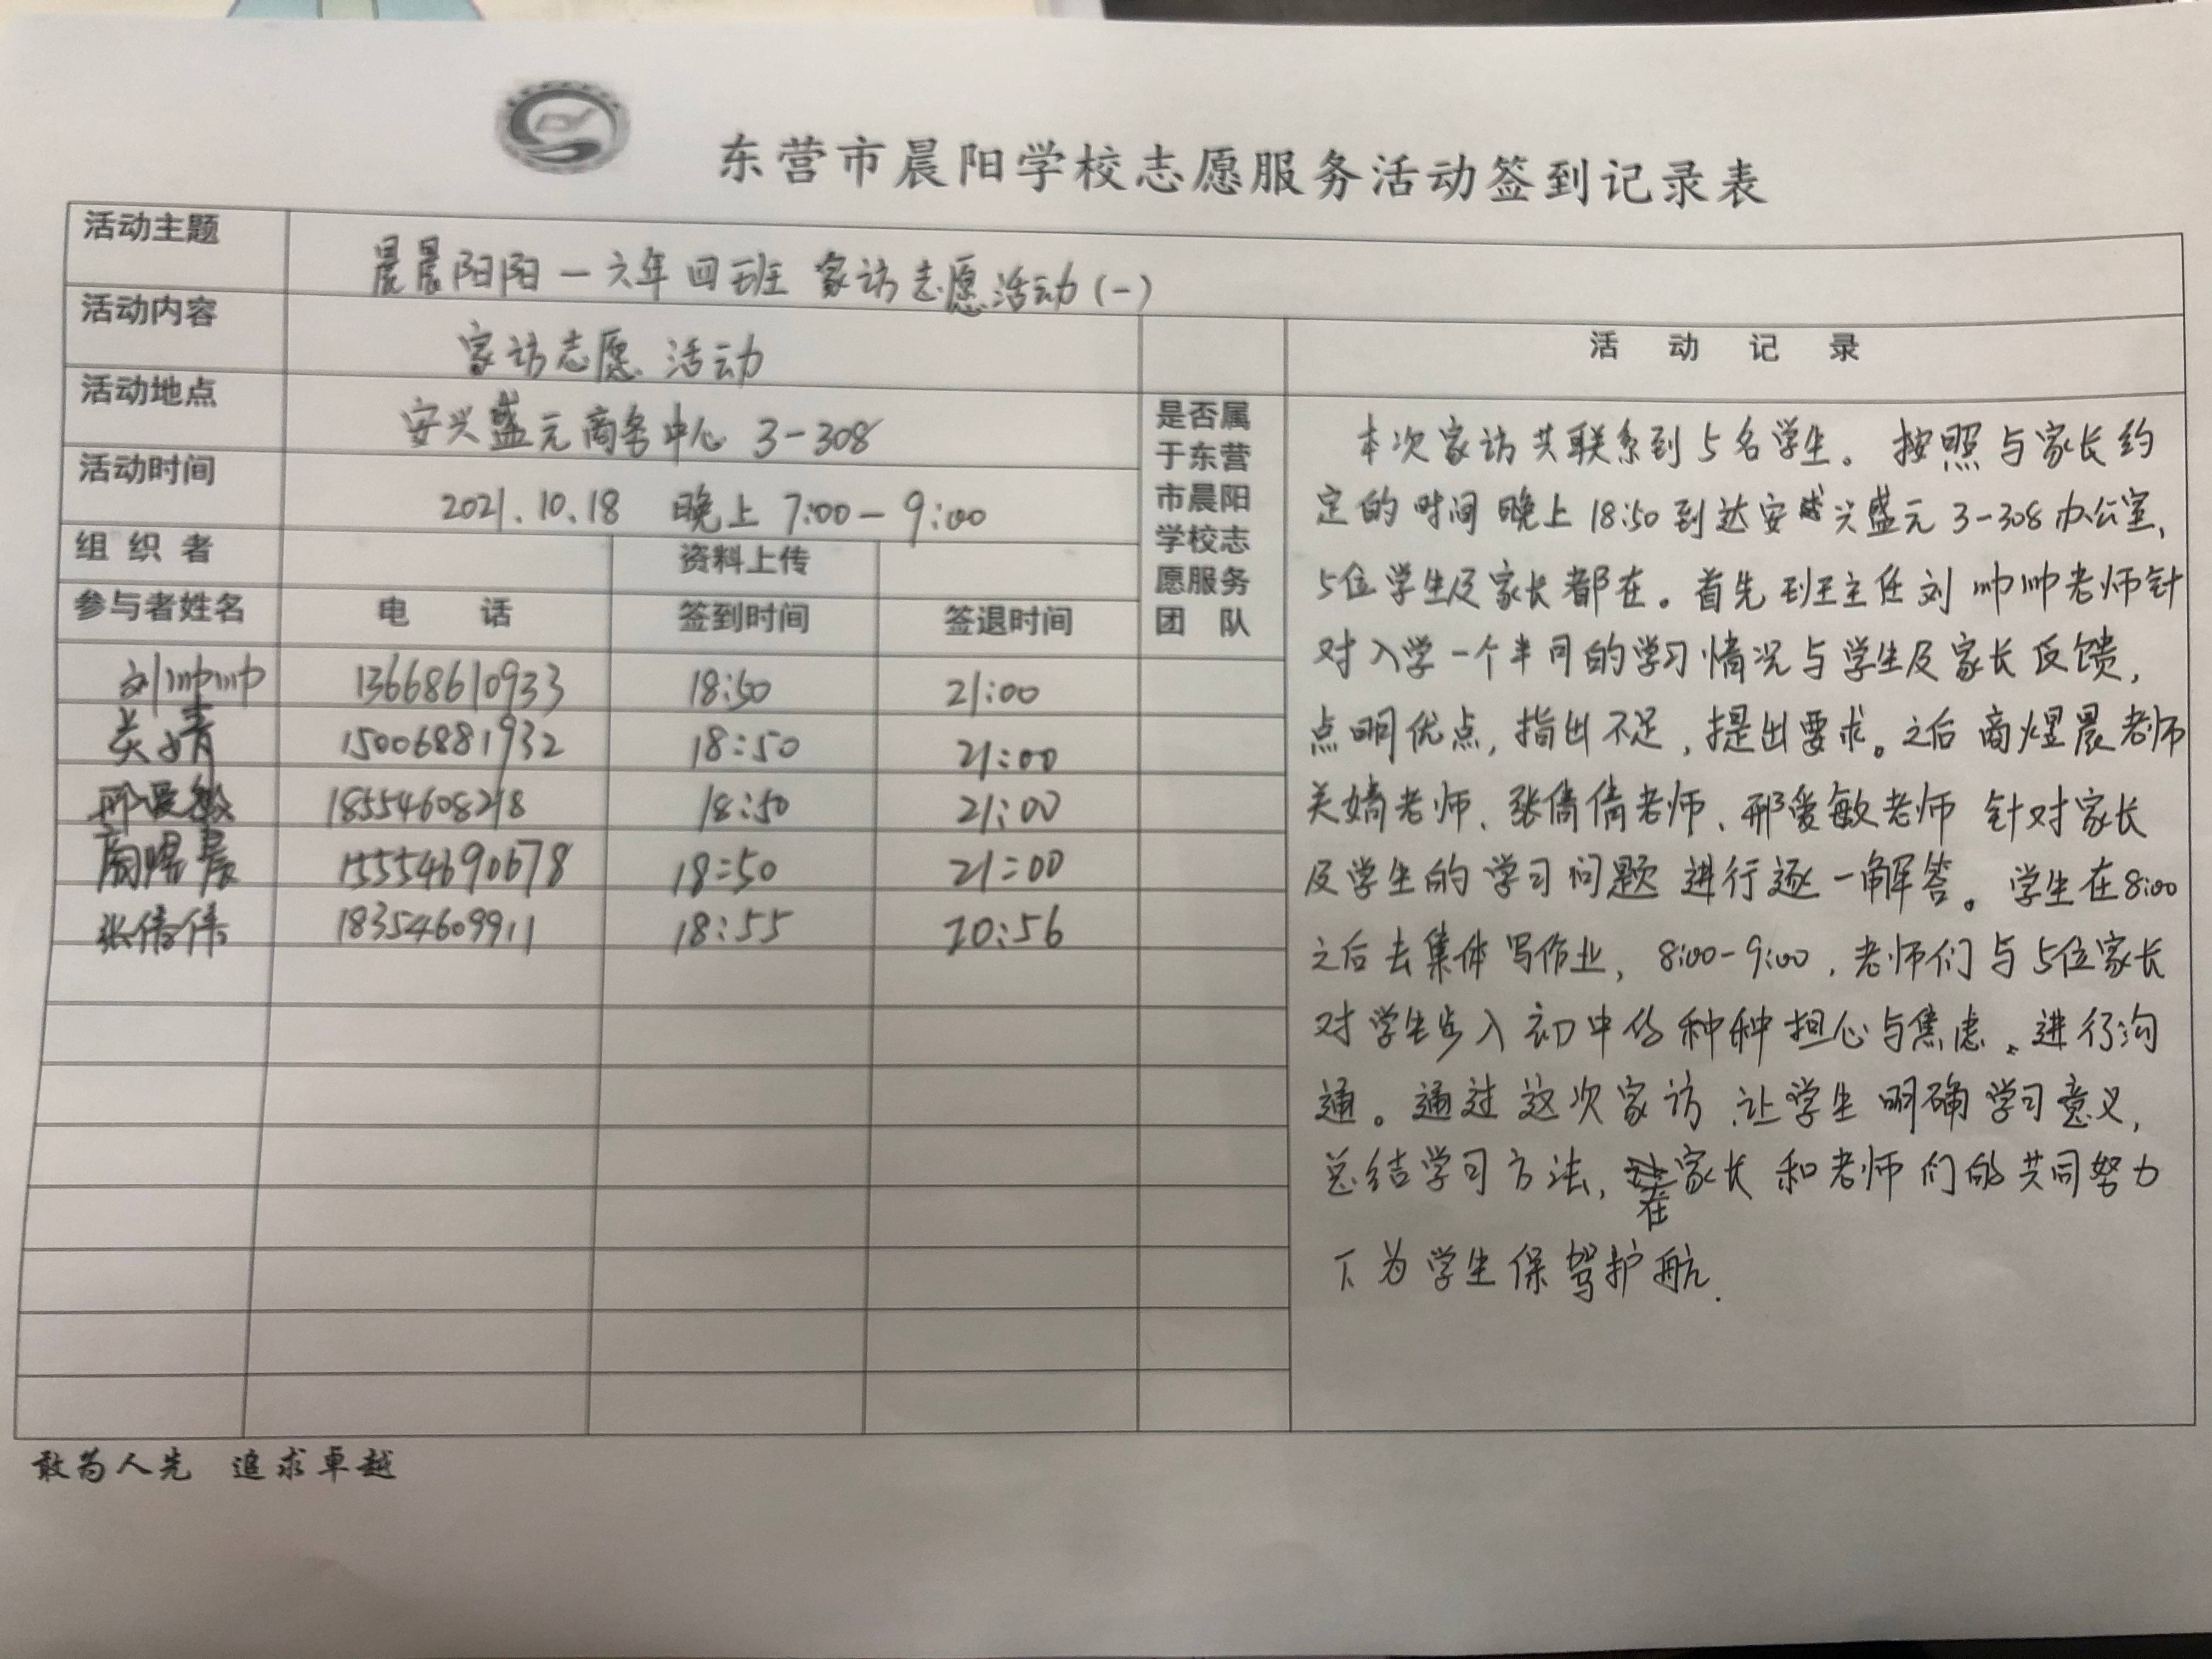 东营市晨阳学校志愿服务活动签到记录表
活动主题 晨晨阳阳—六年四班 家访志愿活动(一)
活动内容 家访志愿活动
活动地点 安兴盛元商务中心 3-308
活动时间 2021.10.18 晚上 7:00-9:00
组织者 资料上传
参与者姓名 电 话 签到时间 签退时间
是否属
于东营
市晨阳
学校志
愿服务
团 队
刘帅帅 13668610933 18:50 21:00
关婧 15006881932 18:50 21:00
邢爱敏 18554608218 18:50 21:00
商煜晨 15554690678 18:50 21:00
张倩倩 18354609911 18:55 20:56
活 动 记 录
本次家访共联系到5名学生。按照与家长约
定的时间晚上18:50到达安兴盛元3-308办公室,
5位学生及家长都在。首先班主任刘帅帅老师针
对入学一个半月的学习情况与学生及家长反馈,
点明优点,指出不足,提出要求。之后商煜晨老师
关婧老师、张倩倩老师、邢爱敏老师针对家长
及学生的学习问题进行逐一解答。学生在8:00
之后去集体写作业,8:00-9:00,老师们与5位家长
对学生步入初中的种种担心与焦虑、进行沟
通。通过这次家访,让学生明确学习意义,
总结学习方法,在家长和老师们的共同努力
下为学生保驾护航.
敢为人先 追求卓越